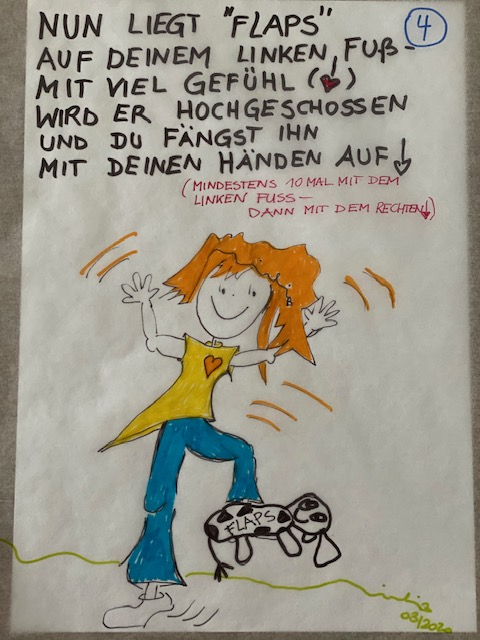 4
NUN LIEGT "FLAPS"
AUF DEINEM LINKEN FUß-
MIT VIEL GEFÜHL (♥)
WIRD ER HOCHGESCHOSSEN
UND DU FÄNGST IHN
MIT DEINEN HÄNDEN AUF
(MINDESTENS 10 MAL MIT DEM
LINKEN FUSS-
DANN MIT DEM RECHTEN)
FLAPS
08/2020